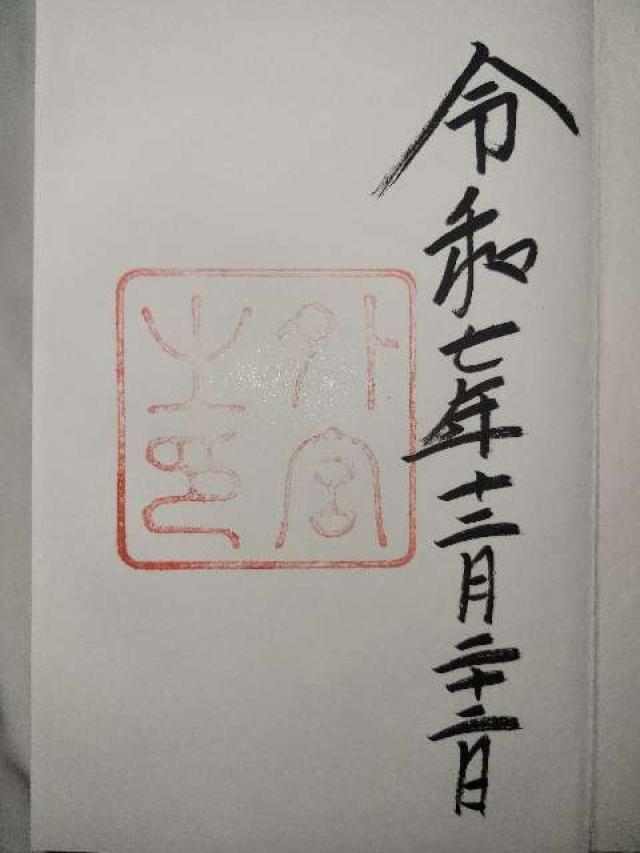 令和七年十二月二十二日
外宮
之印